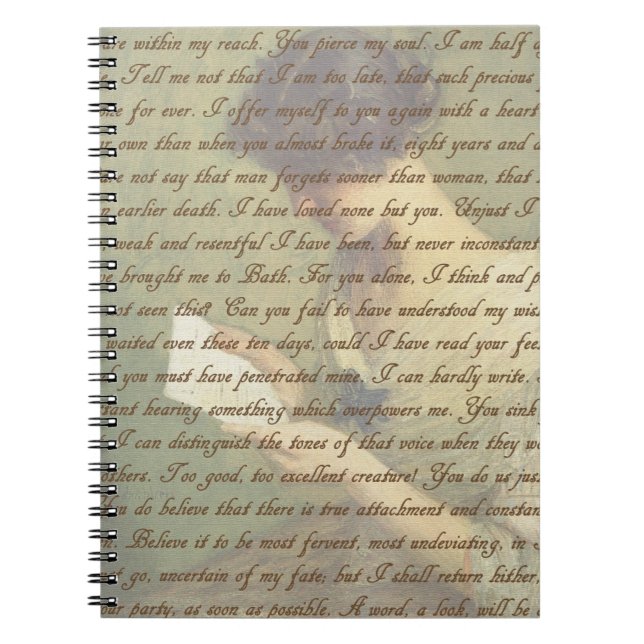 are within my reach. You pierce my soul. I am half ag
e. Tell me not that I am too late, that such precious
one for ever. I offer myself to you again with a heart
ur own than when you almost broke it, eight years and a
are not say that man forgets sooner than woman, that
n earlier death. I have loved none but you. Unjust I
, weak and resentful I have been, but never inconstant
ve brought me to Bath. For you alone, I think and p
not seen this? Can you fail to have understood my wis
waited even these ten days, could I have read your feel
k you must have penetrated mine. I can hardly write.
tant hearing something which overpowers me. You sink
t I can distinguish the tones of that voice when they wo
others. Too good, too excellent creature! You do us just
You do believe that there is true attachment and constan
n. Believe it to be most fervent, most undeviating, in
st go, uncertain of my fate; but I shall return hither,
our party, as soon as possible. A word, a look, will be